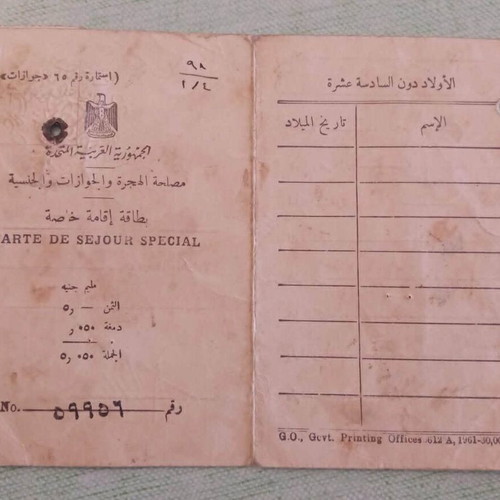 (استمارة رقم ٦٥ «جوازات»
٩٨
الجمهورية العربية المتحدة
مصلحة الهجرة والجوازات والجنسية
بطاقة إقامة خاصة
ARTE DE SEJOUR SPECIAL
مليم جنيه
الثمن — ر٥
دمغة ٠٥٠ ر
الجملة ٠٥٠ ر٥
No. ٥٩٩٥٦ رقم
الأولاد دون السادسة عشرة
الإسم تاريخ الميلاد
G.O., Govt. Printing Offices 612 A, 1961-30,00